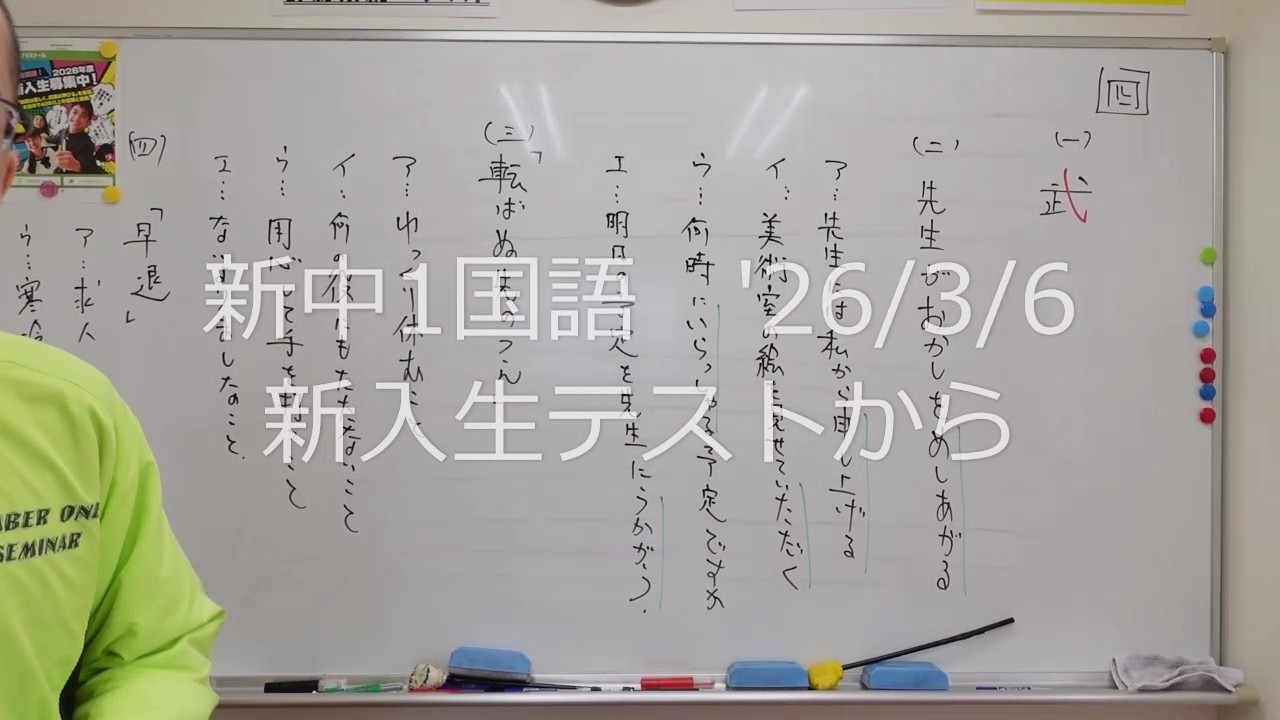 新中1国語 '26/3/6
新入生テストから
四
(一)
武
(二) 先生がおかしをめしあがる
ア…先生には私から申し上げる
イ…美術室の絵を見せていただく
ウ…何時にいらっしゃる予定ですか
エ…明日の予定を先生にうかがう.
(三)「転ばぬ先のつえ
ア…ゆっくり休むこと
イ…何の役にもたたないこと
ウ…用心して手を出すこと
(四)「早退」
ア…求人
ウ…寒冷
2026年度
新入生募集中!
SEMINAR